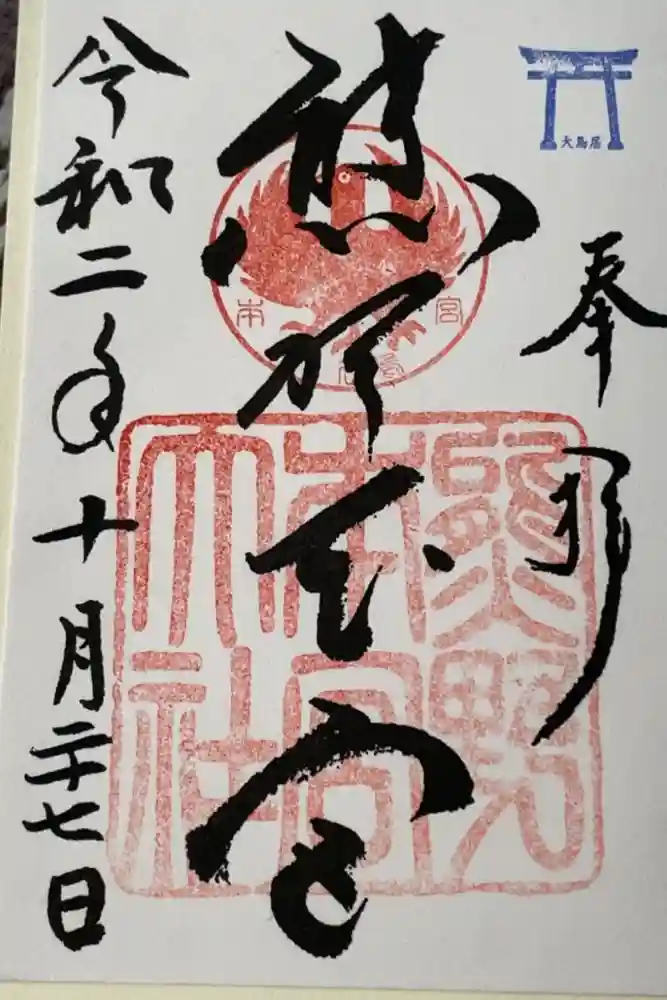 大鳥居
奉拝
熊野本宮
熊野
本宮
大社
令和二年十月二十七日